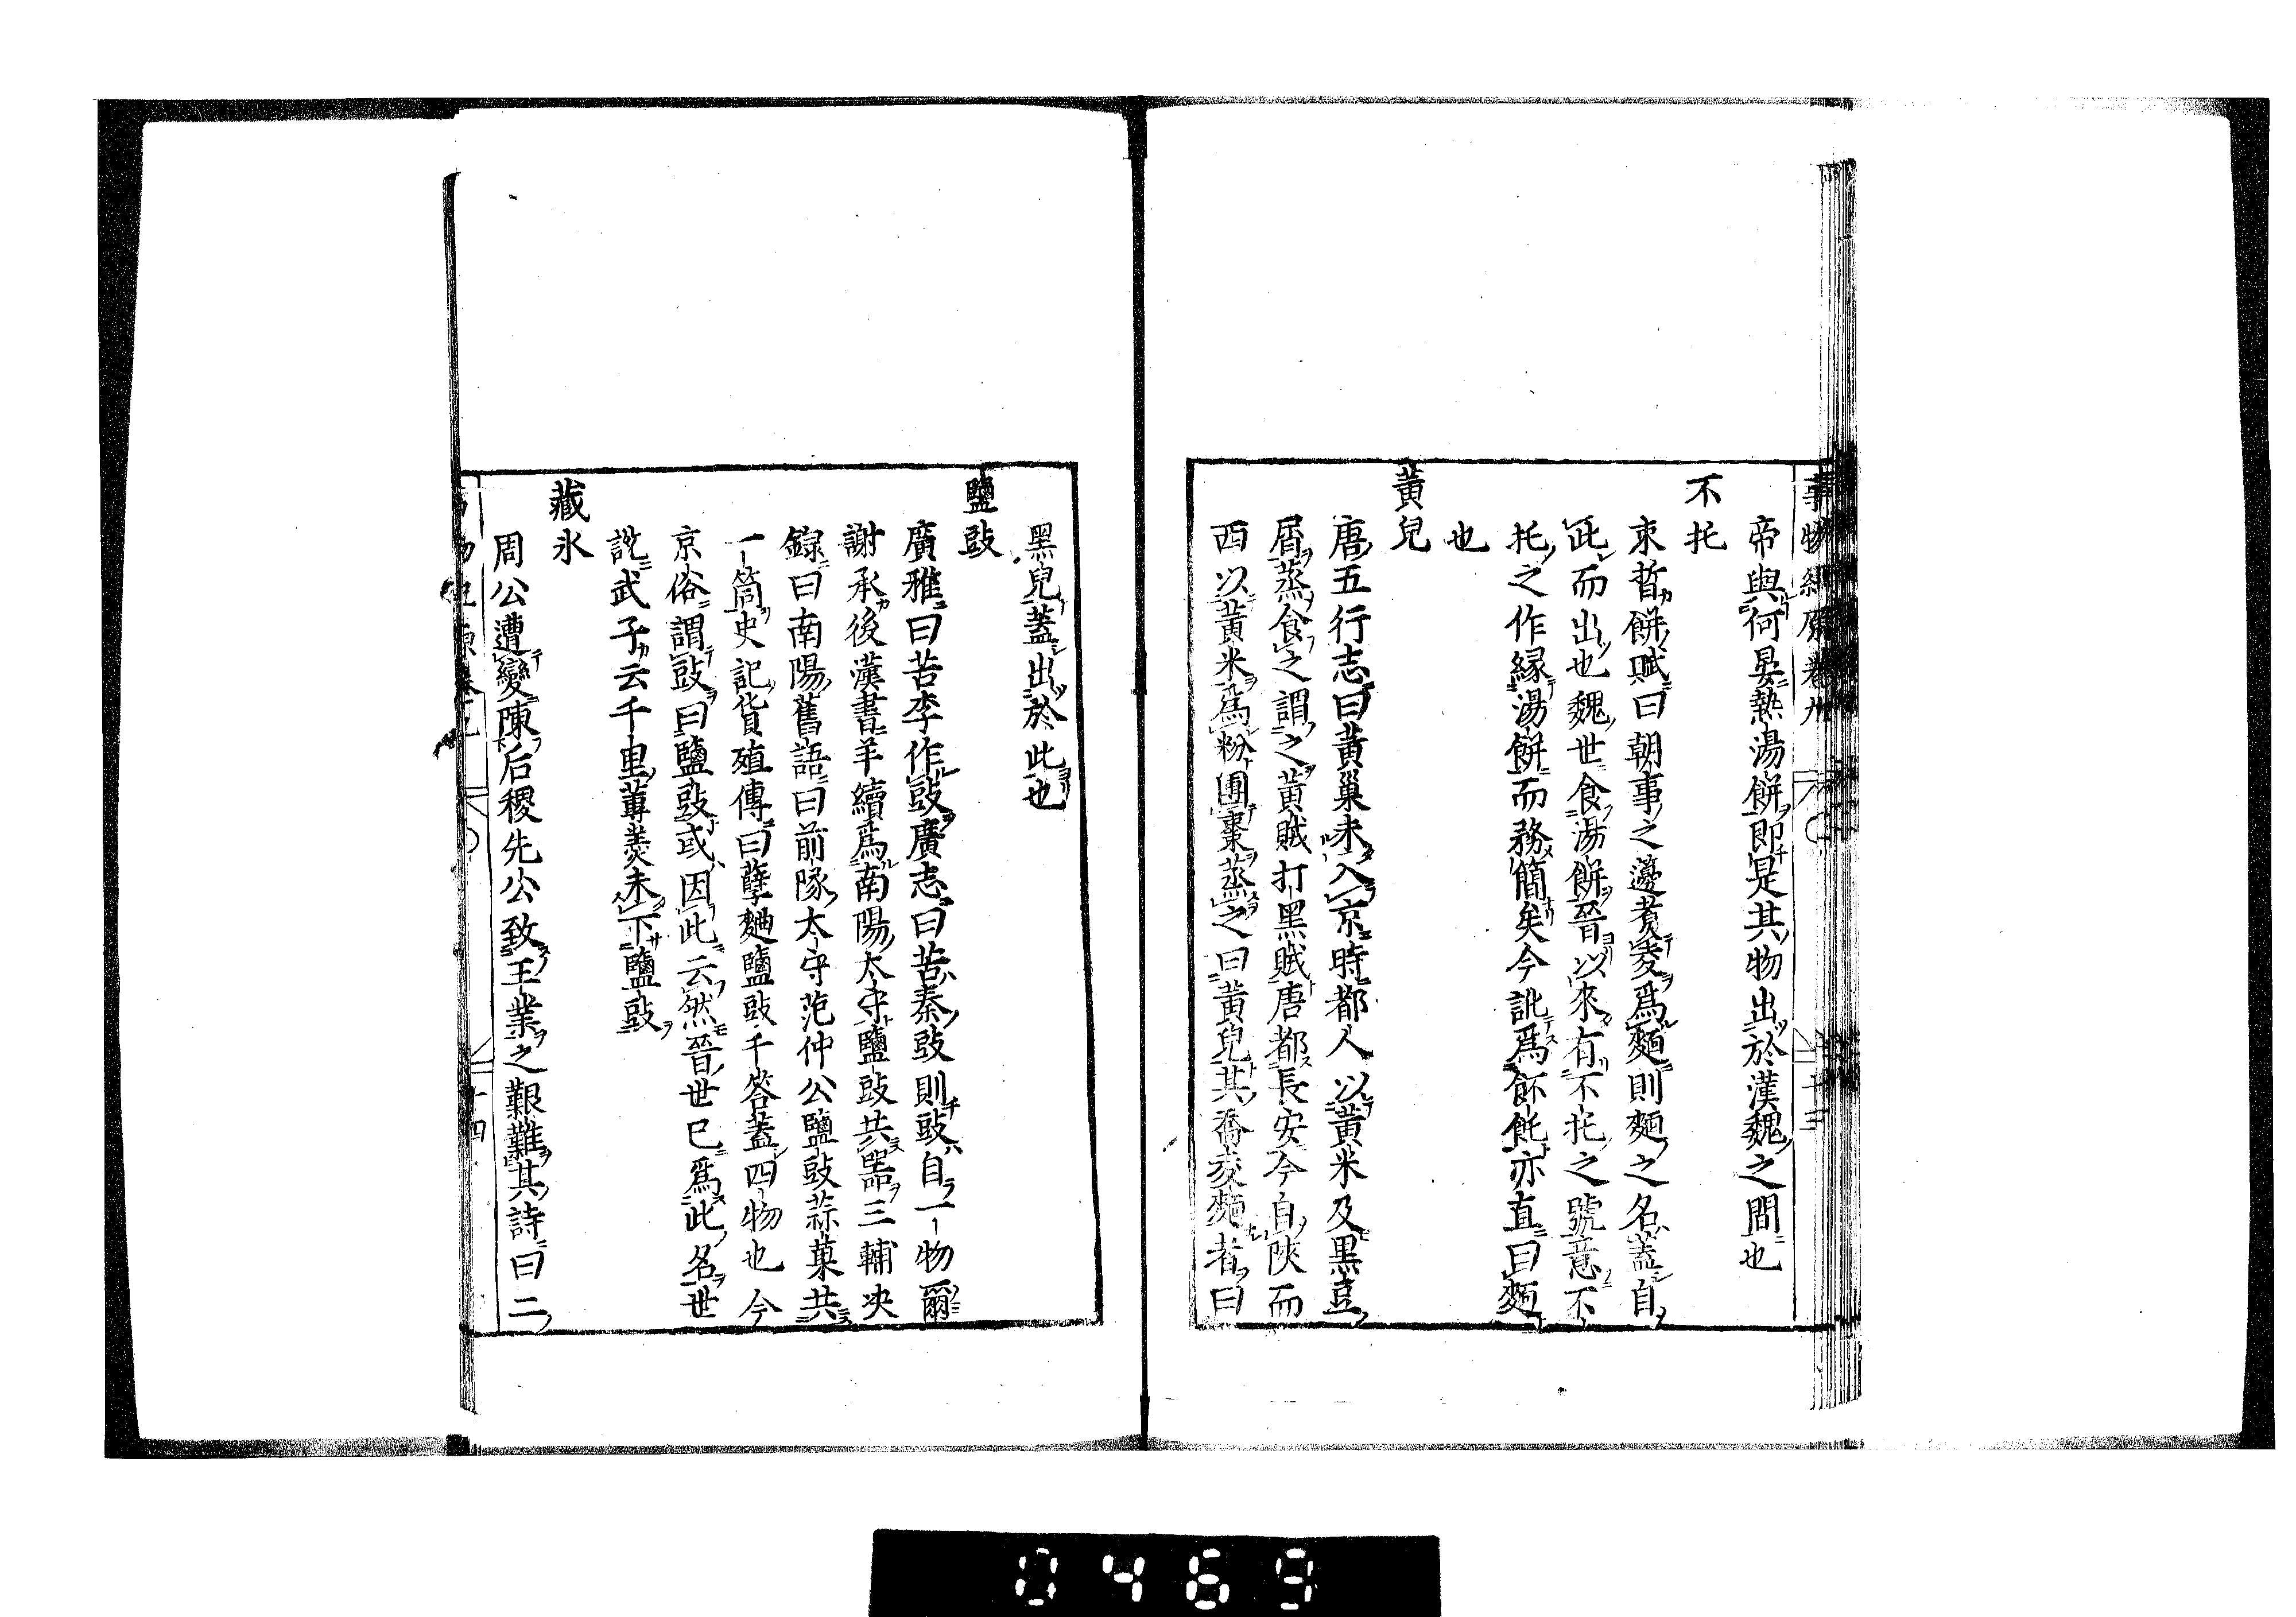 事物紀原卷九
帝與何晏熱湯餅即是其物出於漢魏之間也
不托
束晳餅賦曰朝事之籩煮麥爲麵則麵之名蓋自
此而出也魏世食湯餅晉以來有不托之號意不
托之作緣湯餅而務簡矣今訛爲飥亦直曰麵
也
黃兒
唐五行志曰黃巢未入京時都人以黃米及黑豆
屑蒸食之謂之黃賊打黑賊唐都長安今自陝而
西以黃米爲粉圃棗蒸之曰黃兒其喬麥麵者曰
黑兒蓋出於此也
鹽豉
廣雅曰苦李作豉廣志曰苦秦豉則豉自一物爾
謝承後漢書羊續爲南陽太守鹽豉共器三輔决
錄曰南陽舊語曰前隊太守范仲公鹽豉蒜菓共
一筒史記貨殖傳曰蘖麯鹽豉千答蓋四物也今
京俗謂豉曰鹽豉或因此云然晉世已爲此名世
說武子云千里蓴羹未下鹽豉
藏氷
周公遭變陳后稷先公致王業之艱難其詩曰二
十四
0469